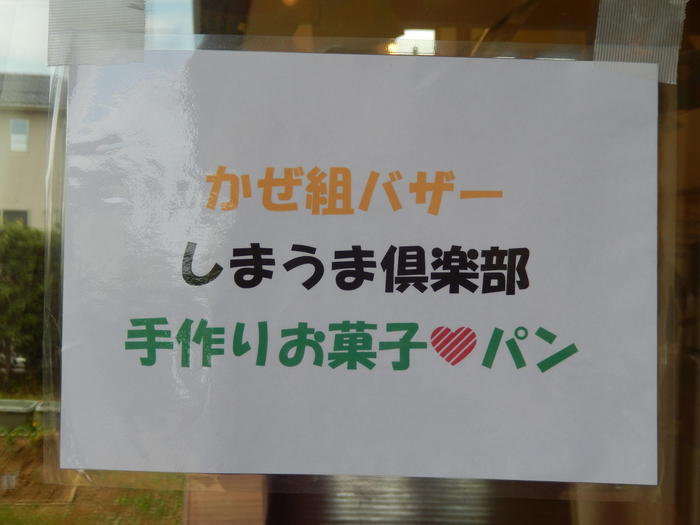 かぜ組バザー
しまうま倶楽部
手作りお菓子♥パン